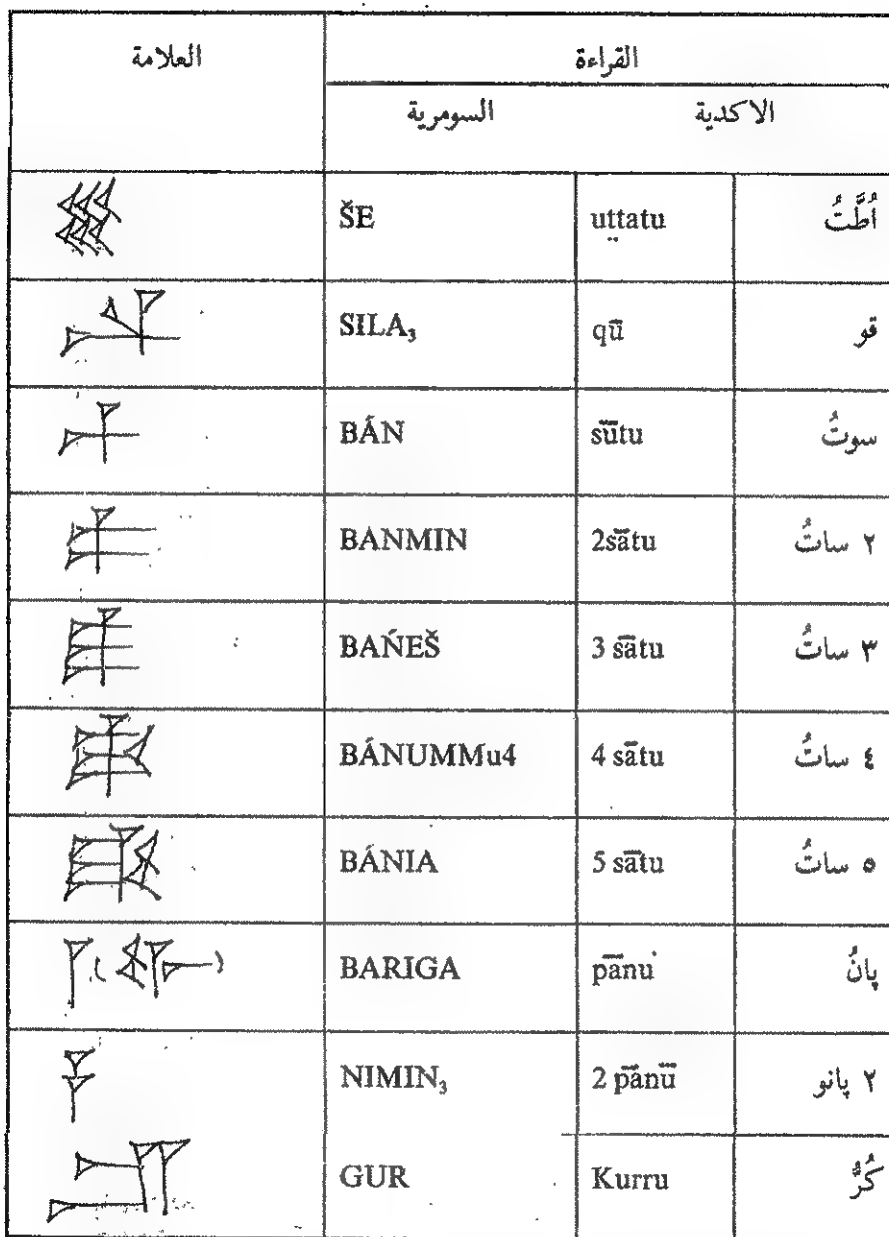 العلامة القراءة
السومرية الاكدية
ŠE uṭṭatu اُطَّتُ
SILA₃ qū قو
BÁN sūtu سوتُ
BANMIN 2sātu ٢ ساتُ
BAŃEŠ 3 sātu ٣ ساتُ
BÁNUMMu4 4 sātu ٤ ساتُ
BÁNIA 5 sātu ٥ ساتُ
BARIGA pānu پانُ
NIMIN₃ 2 pānū ٢ پانو
GUR Kurru كُرُّ